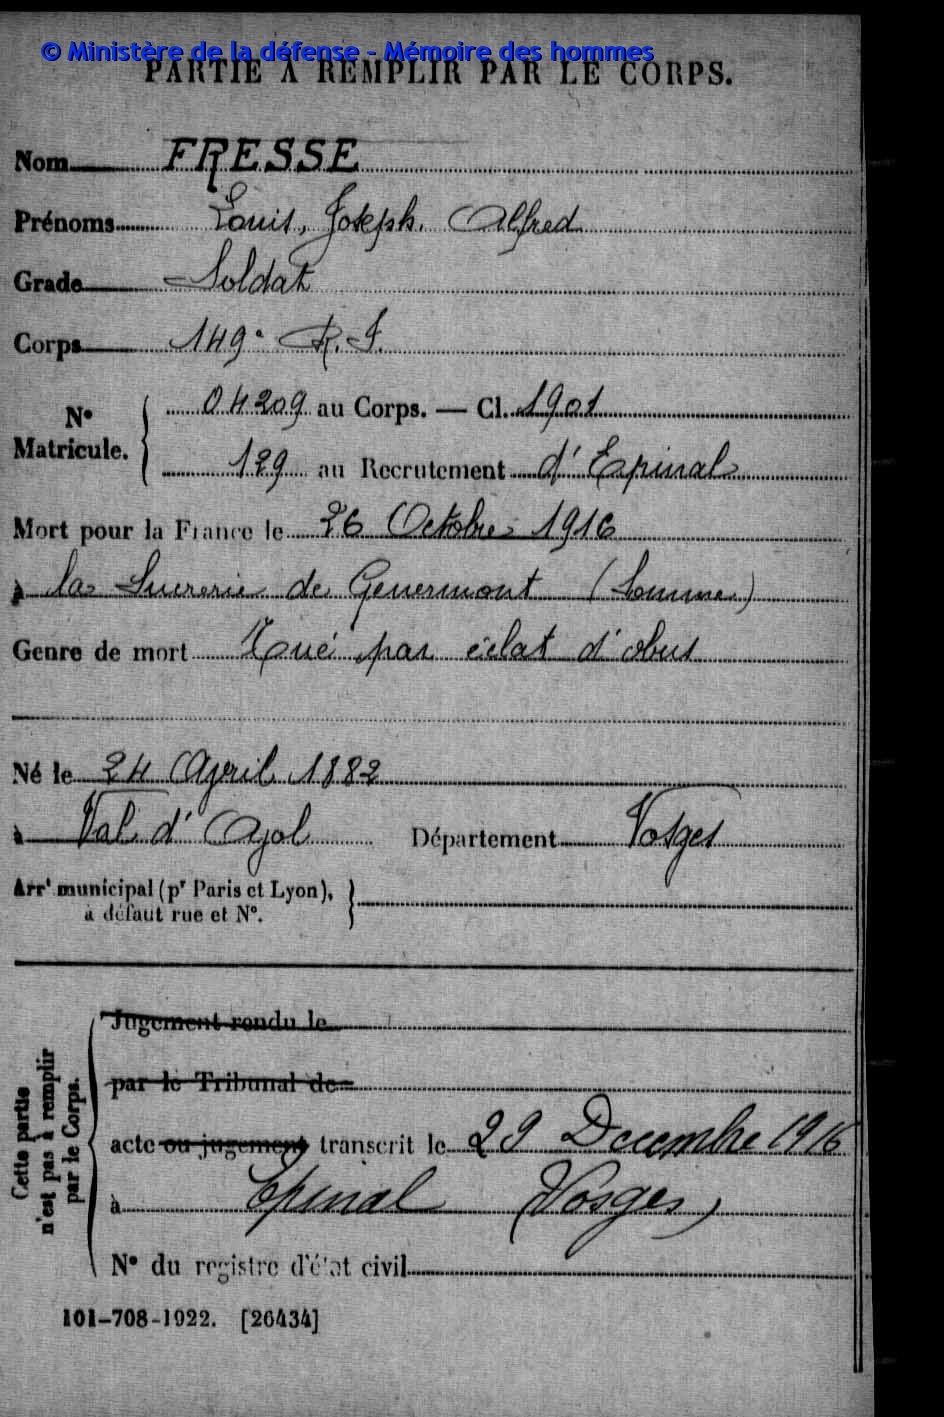 © Ministère de la défense - Mémoire des hommes
PARTIE A REMPLIR PAR LE CORPS.
Nom FRESSE
Prénoms Louis, Joseph. Alfred
Grade Soldat
Corps 149e R. I.
N° Matricule. 04209 au Corps. — Cl. 1901
129 au Recrutement d'Epinal
Mort pour la France le 26 Octobre 1916
à la Sucrerie de Genermont (Somme)
Genre de mort Tué par éclat d'obus
Né le 24 Avril 1882
à Val d'Ajol Département Vosges
Arrt municipal (pr Paris et Lyon),
à défaut rue et N°.
Cette partie
n'est pas à remplir
par le Corps.
Jugement rendu le
par le Tribunal de
acte ou jugement transcrit le 29 Decembre 1916
à Epinal (Vosges)
N° du registre d'état civil
101-708-1922. [26434]